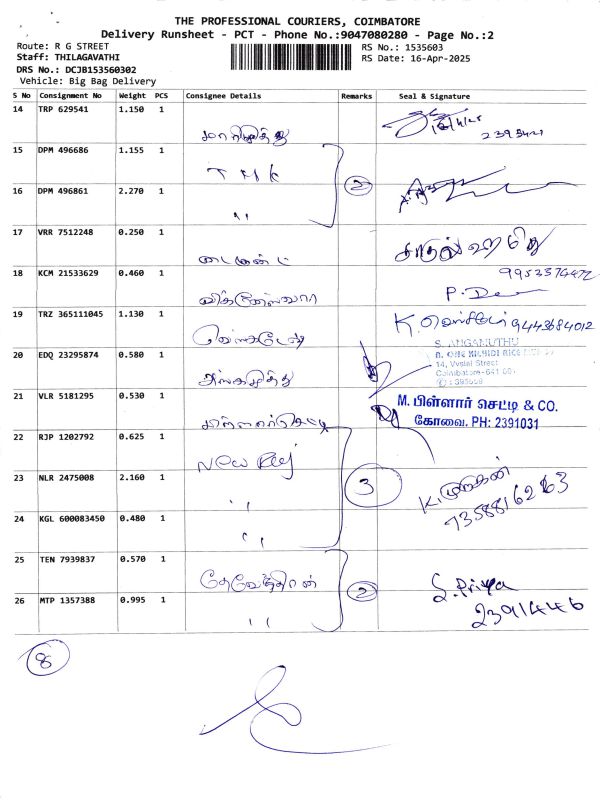 THE PROFESSIONAL COURIERS, COIMBATORE
Delivery Runsheet - PCT - Phone No.:9047080280 - Page No.:2
Route: R G STREET
RS No.: 1535603
Staff: THILAGAVATHI
RS Date: 16-Apr-2025
DRS No.: DCJB153560302
Vehicle: Big Bag Delivery
S No Consignment No Weight PCS Consignee Details Remarks Seal & Signature
14 TRP 629541 1.150 1
மாரிமுத்து 16/4/25
15 DPM 496686 1.155 1
2
16 DPM 496861 2.270 1
"
17 VRR 7512248 0.250 1
18 KCM 21533629 0.460 1
விக்னேஸ்வரா
19 TRZ 365111045 1.130 1
வெங்கடேஷ் K. 9443684012
20 EDQ 23295874 0.580 1
அங்கமுத்து S. ANGAMUTHU
14, Vysial Street
21 VLR 5181295 0.530 1
M. பிள்ளார் செட்டி & CO.
கோவை. PH: 2391031
22 RJP 1202792 0.625 1
New
23 NLR 2475008 2.160 1
" 3 K. முருகன்
7358816263
24 KGL 600083450 0.480 1
"
25 TEN 7939837 0.570 1
தேவேந்திரன் 2 S. Priya
2391446
26 MTP 1357388 0.995 1
"
8